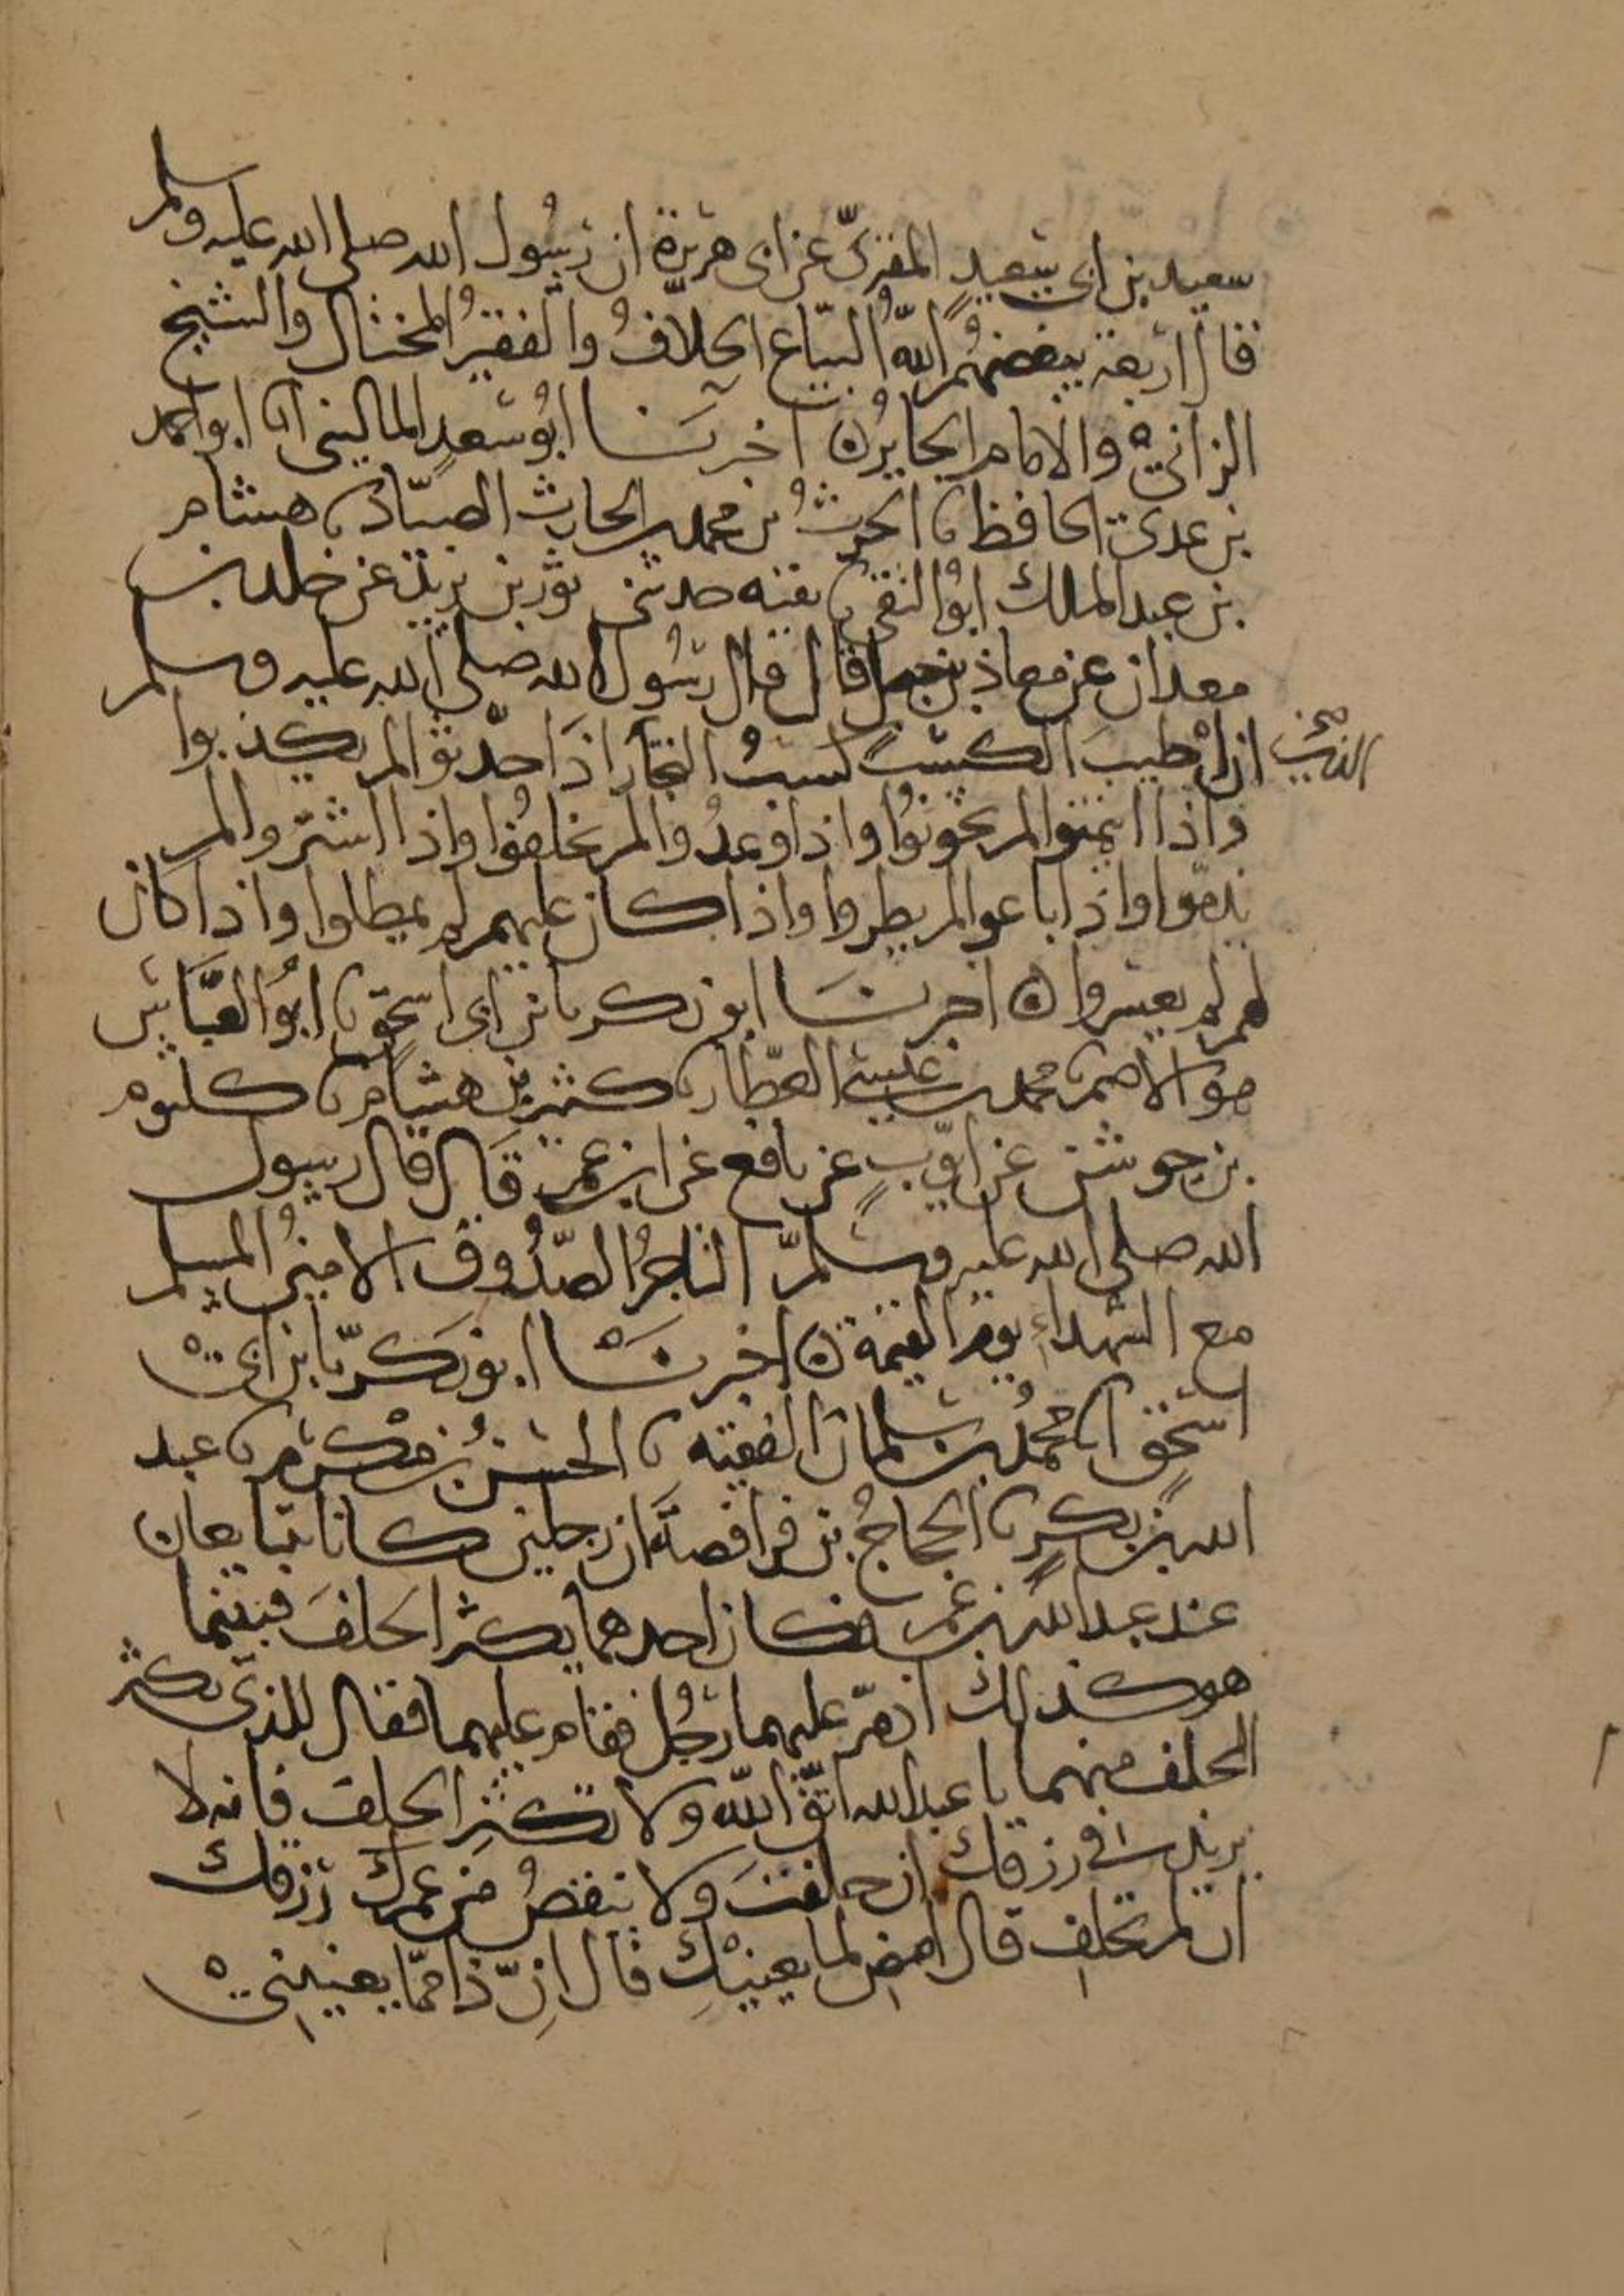 سعيد بن ابى سعيد المقبرىّ عن ابى هريرة ان رسُول الله صلى الله عليه وسلم
قال اربعة يبغضهُم اللهُ البيّاع الحلّافُ والفقيرُ المختال والشيخ
الزانى والامام الجايرُ ه اخبرنا ابُو سعدٍ المالينى انا ابو احمد
بن عدى الحافظ نا الحرثُ بن محمد بن الحارث الصيّاد نا هشام
بن عبد الملك ابُو التقى نا بقيه حدثنى ثور بن يزيد عن خلد بن
معدان عن معاذ بن جبل قال قال رسُول الله صلى الله عليه وسلم
ان اطيبَ الكسب كسبُ التجّار اذَا حدّثوا لم يكذبوا
واذا ايتمنوا لم يخونُوا واذا وعدُوا لم يخلفُوا واذا اشتروا لم
يذمّوا واذا باعوا لم يطروا واذا كان عليهم لم يمطلوا واذا كان
لهم لم يعسروا ه اخبرنَا ابو زكريا بن ابى اسحق نا ابُو العبَّاس
هو الاصم نا محمد بن عيسى العطّار نا كثير بن هشام نا كلثوم
بن جوشن عن ايّوبٍ عن نافع عن ابن عمر قَال قال رسول
الله صلى الله عليه وسلمّ التاجرُ الصّدُوق الامينُ المسلم
مع الشهداءِ يوم القيمة ه اخبرنَا ابو زكريّا بن ابى
اسحق انا محمدُ بن سلمان الفقيه نا الحسنُ بن مكرم نا عبد
الله بن بكرٍ نا الحجاجُ بن فرافصةَ ان رجلين كانا يتبايعان
عند عبد الله بن عمر فكان احدهما يكثر الحَلفَ فبينما
هو كذلك اذ مرّ عليهما رجُل فقام عليهما فقال للذى يكثر
الحلف منهما يا عبد الله اتّقِ اللهَ ولا تكثِر الحلفَ فانه لا
يزيد فى رزقك ان حلفتَ ولا ينقصُ من رزقك
ان لم تحلِف قال امضِ لما يعنيْكِ قال اِنّ ذا ممّا يعنينى